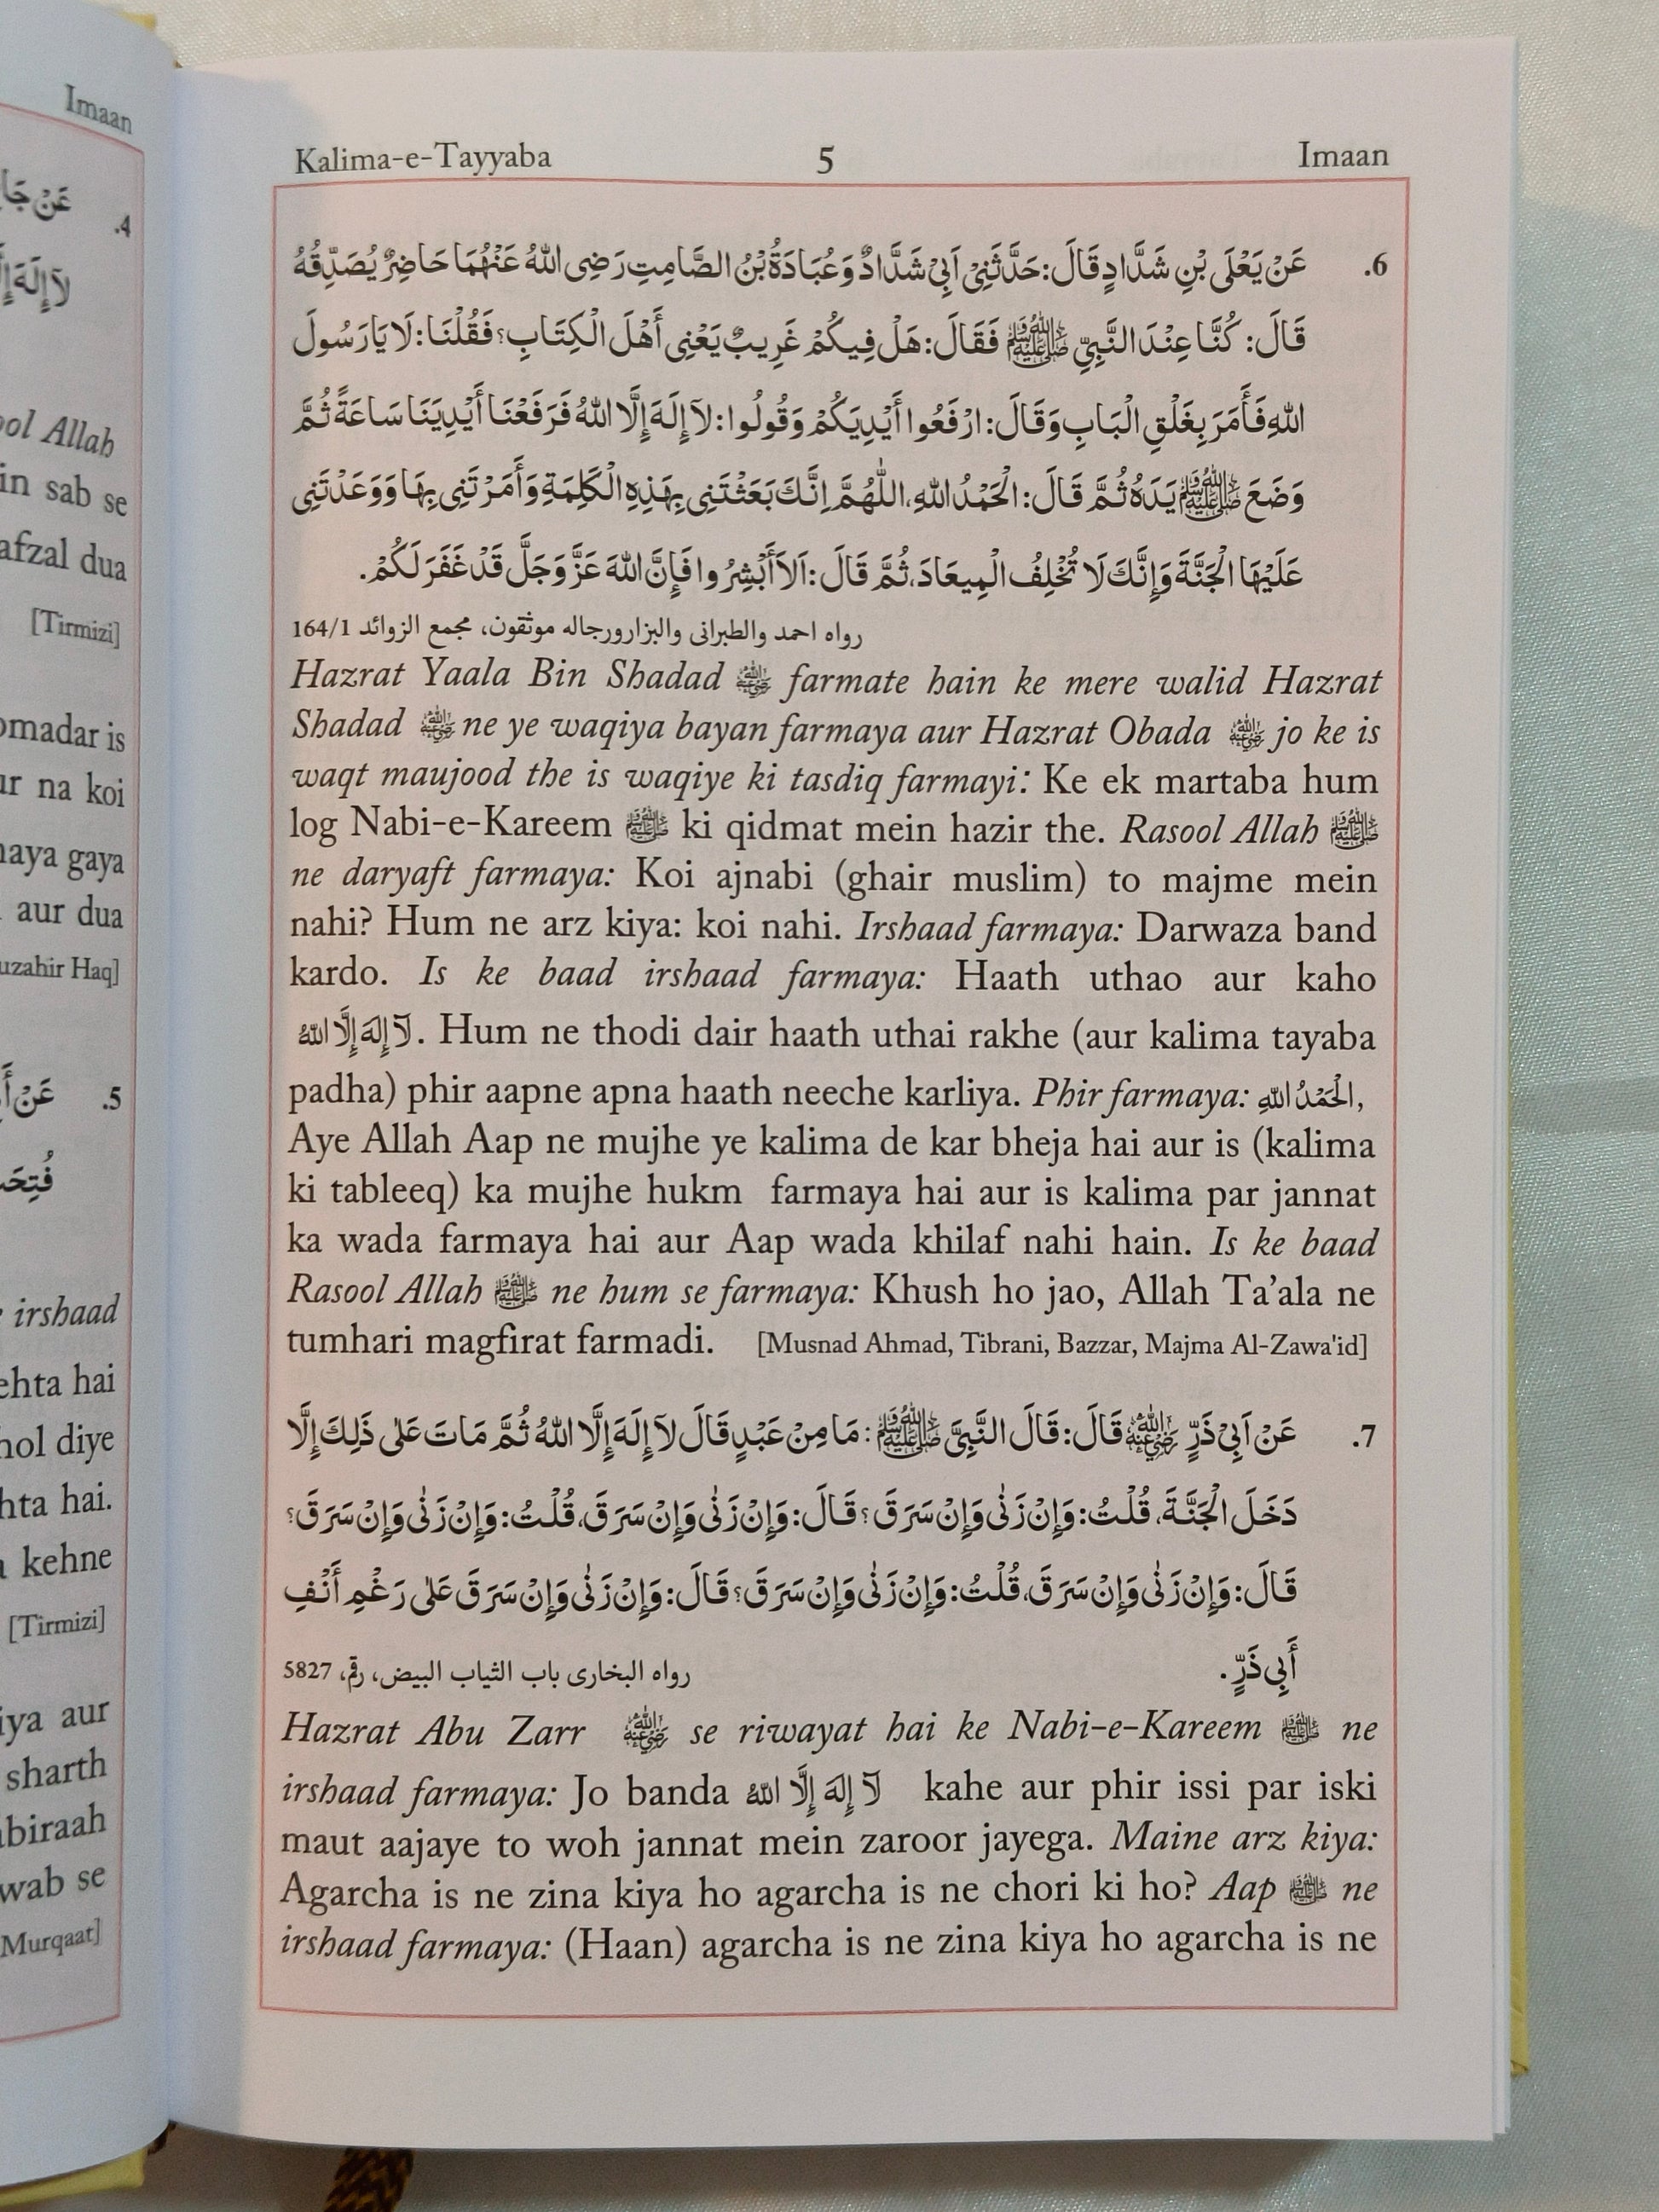 Imaan
عَنْ
.4
لَآ إِلٰهَ
Allah
in sab se
afzal dua
[Tirmizi]
is
na koi
gaya
aur dua
Haq]
عَنْ
.5
irshaad
hai
diye
hai.
kehne
[Tirmizi]
aur
sharth
se
Murqaat]
Kalima-e-Tayyaba 5 Imaan
6. عَنْ يَعْلَى بْنِ شَدَّادٍ قَالَ: حَدَّثَنِيْ اَبِيْ شَدَّادٌ وَعُبَادَةُ بْنُ الصَّامِتِ رَضِى اللهُ عَنْهُمَا حَاضِرٌ يُصَدِّقُهُ
قَالَ: كُنَّا عِنْدَ النَّبِيِّ ﷺ فَقَالَ: هَلْ فِيكُمْ غَرِيبٌ يَعْنِى أَهْلَ الْكِتَابِ؟ فَقُلْنَا: لَا يَا رَسُولَ
اللهِ فَأَمَرَ بِغَلْقِ الْبَابِ وَقَالَ: ارْفَعُوا أَيْدِيَكُمْ وَقُولُوا: لَآ إِلَهَ إِلَّا اللهُ فَرَفَعْنَا أَيْدِيَنَا سَاعَةً ثُمَّ
وَضَعَ ﷺ يَدَهُ ثُمَّ قَالَ: الْحَمْدُ اللهِ، اللّٰهُمَّ اِنَّكَ بَعَثْتَنِى بِهَذِهِ الْكَلِمَةِ وَأَمَرْتَنِى بِهَا وَوَعَدْتَنِى
عَلَيْهَا الْجَنَّةَ وَإِنَّكَ لَا تُخْلِفُ الْمِيعَادَ، ثُمَّ قَالَ: اَلَا أَبْشِرُوا فَإِنَّ اللهَ عَزَّ وَجَلَّ قَدْ غَفَرَ لَكُمْ.
رواه احمد والطبرانى والبزارورجاله موثقون، مجمع الزوائد 164/1
Hazrat Yaala Bin Shadad ؓ farmate hain ke mere walid Hazrat
Shadad ؓ ne ye waqiya bayan farmaya aur Hazrat Obada ؓ jo ke is
waqt maujood the is waqiye ki tasdiq farmayi: Ke ek martaba hum
log Nabi-e-Kareem ﷺ ki qidmat mein hazir the. Rasool Allah ﷺ
ne daryaft farmaya: Koi ajnabi (ghair muslim) to majme mein
nahi? Hum ne arz kiya: koi nahi. Irshaad farmaya: Darwaza band
kardo. Is ke baad irshaad farmaya: Haath uthao aur kaho
لَآ إِلَهَ إِلَّا اللهُ. Hum ne thodi dair haath uthai rakhe (aur kalima tayaba
padha) phir aapne apna haath neeche karliya. Phir farmaya: الْحَمْدُ اللهِ,
Aye Allah Aap ne mujhe ye kalima de kar bheja hai aur is (kalima
ki tableeq) ka mujhe hukm farmaya hai aur is kalima par jannat
ka wada farmaya hai aur Aap wada khilaf nahi hain. Is ke baad
Rasool Allah ﷺ ne hum se farmaya: Khush ho jao, Allah Ta'ala ne
tumhari magfirat farmadi. [Musnad Ahmad, Tibrani, Bazzar, Majma Al-Zawa'id]
7. عَنْ اَبِيْ ذَرٍّ ؓ قَالَ: قَالَ النَّبِيَّ ﷺ: مَا مِنْ عَبْدٍ قَالَ لَآ إِلَهَ إِلَّا اللهُ ثُمَّ مَاتَ عَلٰى ذَلِكَ إِلَّا
دَخَلَ الْجَنَّةَ، قُلْتُ: وَإِنْ زَنٰى وَإِنْ سَرَقَ؟ قَالَ: وَإِنْ زَنٰى وَإِنْ سَرَقَ، قُلْتُ: وَإِنْ زَنٰى وَإِنْ سَرَقَ؟
قَالَ: وَإِنْ زَنٰى وَإِنْ سَرَقَ، قُلْتُ: وَإِنْ زَنٰى وَإِنْ سَرَقَ؟ قَالَ: وَإِنْ زَنٰى وَإِنْ سَرَقَ عَلٰى رَغْمِ أَنْفِ
أَبِى ذَرٍّ. رواه البخارى باب الثياب البيض، رقم، 5827
Hazrat Abu Zarr ؓ se riwayat hai ke Nabi-e-Kareem ﷺ ne
irshaad farmaya: Jo banda لَآ إِلَهَ إِلَّا اللهُ kahe aur phir issi par iski
maut aajaye to woh jannat mein zaroor jayega. Maine arz kiya:
Agarcha is ne zina kiya ho agarcha is ne chori ki ho? Aap ﷺ ne
irshaad farmaya: (Haan) agarcha is ne zina kiya ho agarcha is ne